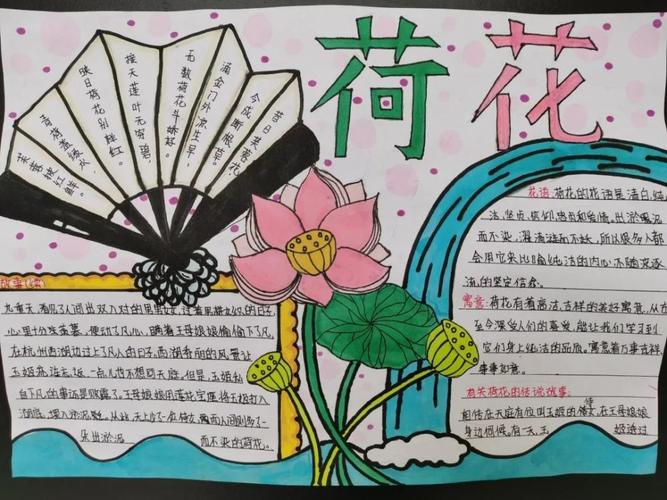 荷花
昔日芙蓉花,
今成断根草。
涌金门外凉生早,
无数荷花斗妆好。
接天莲叶无穷碧,
映日荷花别样红。
青荷盖绿水,
芙蓉披红鲜。
花语:荷花的花语是清白,
坚贞,信仰,忠贞和爱情。出淤泥
而不染,濯清涟而不妖,所以很多人都
会用它来比喻纯洁的内心,不随
的坚定信念。
寓意:荷花有着高洁,吉祥的美好寓意,从
深受人们的喜爱,能让我们学习到
它们身上纯洁的品质。寓意着万事吉祥,
事事如意。
有关荷花的传说故事:
相传在天庭有位叫玉姬的侍女,在王母娘娘
身边伺候。有一天,玉姬透过
看见了人间出双入对的男男女女,过着男耕女织的日子,
心里十分羡慕,便动了凡心,瞒着王母娘娘偷偷下了凡,
在杭州西湖边过上了凡人的日子。西湖秀丽的风景让
玉姬流连忘返,一点儿也不想回天庭。但是,玉姬私
自下凡的事还是败露了。王母娘娘用莲花宝座将玉姬打入
湖底,埋入淤泥。从此,天上少了一位侍女,而人间则多了一
朵出淤泥而不染的荷花。